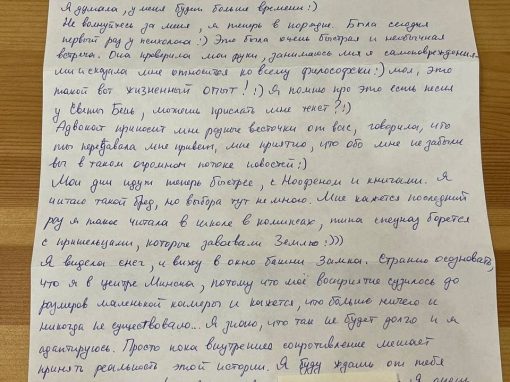 Я думала, у меня будет больше времени :)
Не волнуйтесь за меня, я теперь в порядке. Была сегодня
первый раз у психолога :) Это была очень быстрая и необычная
встреча. Она проверила мои руки, занимаюсь ли я самоповреждения-
ми и сказала мне относится ко всему философски :) мол, это
такой вот жизненный опыт! :) Я помню про это есть песня
у Светы Бень, можешь прислать мне текст? :)
Адвокат приносит мне разные весточки от вас, говорила, что
ты передавала мне привет, мне приятно, что обо мне не забыли
вы в таком огромном потоке новостей :)
Мои дни идут теперь быстрее, с Ноофеном и книгами. Я
читаю такой бред, но выбора тут не много. Мне кажется последний
раз я такое читала в школе в комиксах, типа спецназ борется
с пришельцами, которые завоевали Землю :)))
Я видела снег, и вижу в окно башни Замка. Странно осознавать,
что я в центре Минска, потому что моё восприятие сузилось до
размеров маленькой камеры и кажется, что больше ничего и
никогда не существовало... Я знаю, что так не будет долго и я
адаптируюсь. Просто пока внутреннее сопротивление мешает
принять реальность этой истории. Я буду ждать от тебя